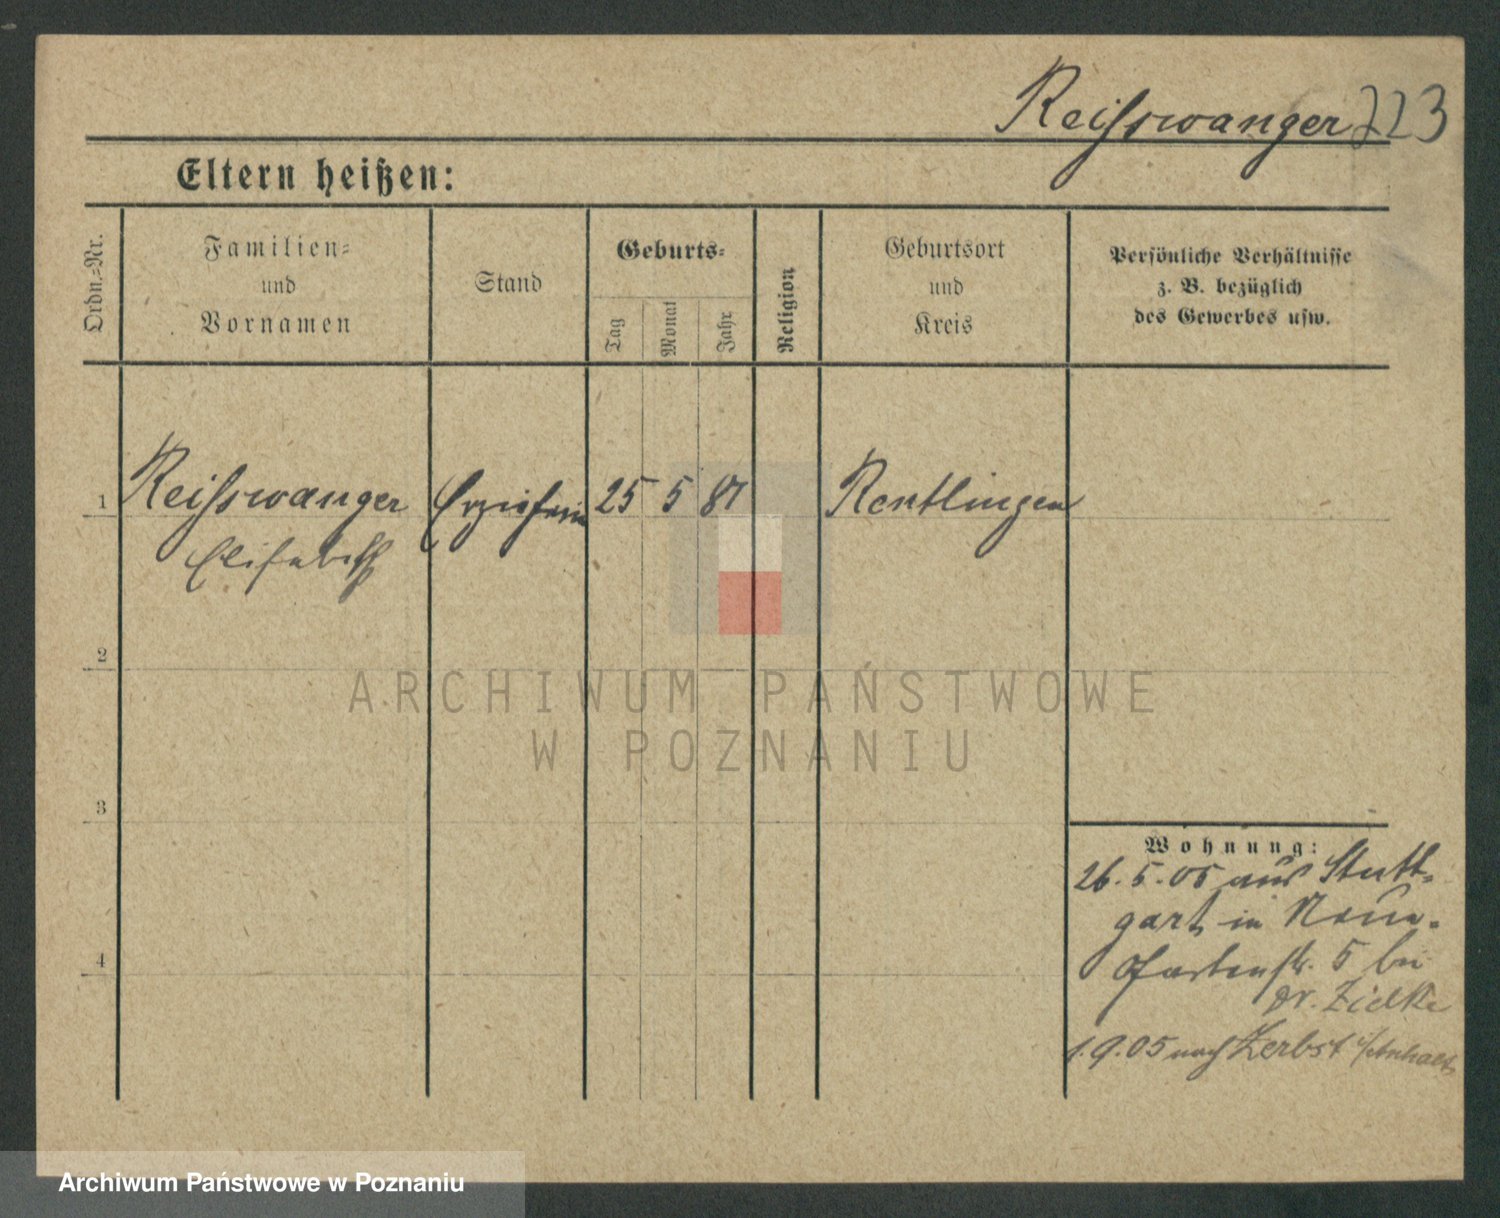 Reisswanger 223
Eltern heißen:
Ordn.-Nr.
Familien-
und
Vornamen
Stand
Geburts-
Tag
Monat
Jahr
Religion
Geburtsort
und
Kreis
Persönliche Verhältnisse
z. B. bezüglich
des Gewerbes usw.
1 Reisswanger Erzieherin 25 5 87 Reutlingen
Elisabeth
2
ARCHIWUM PAŃSTWOWE
W POZNANIU
3
Wohnung:
26.5.05 aus Stutt-
gart in
4
Gartenstr. 5 bei
Dr. Zielke
1.9.05 nach Zerbst i/Anhalt
Archiwum Państwowe w Poznaniu